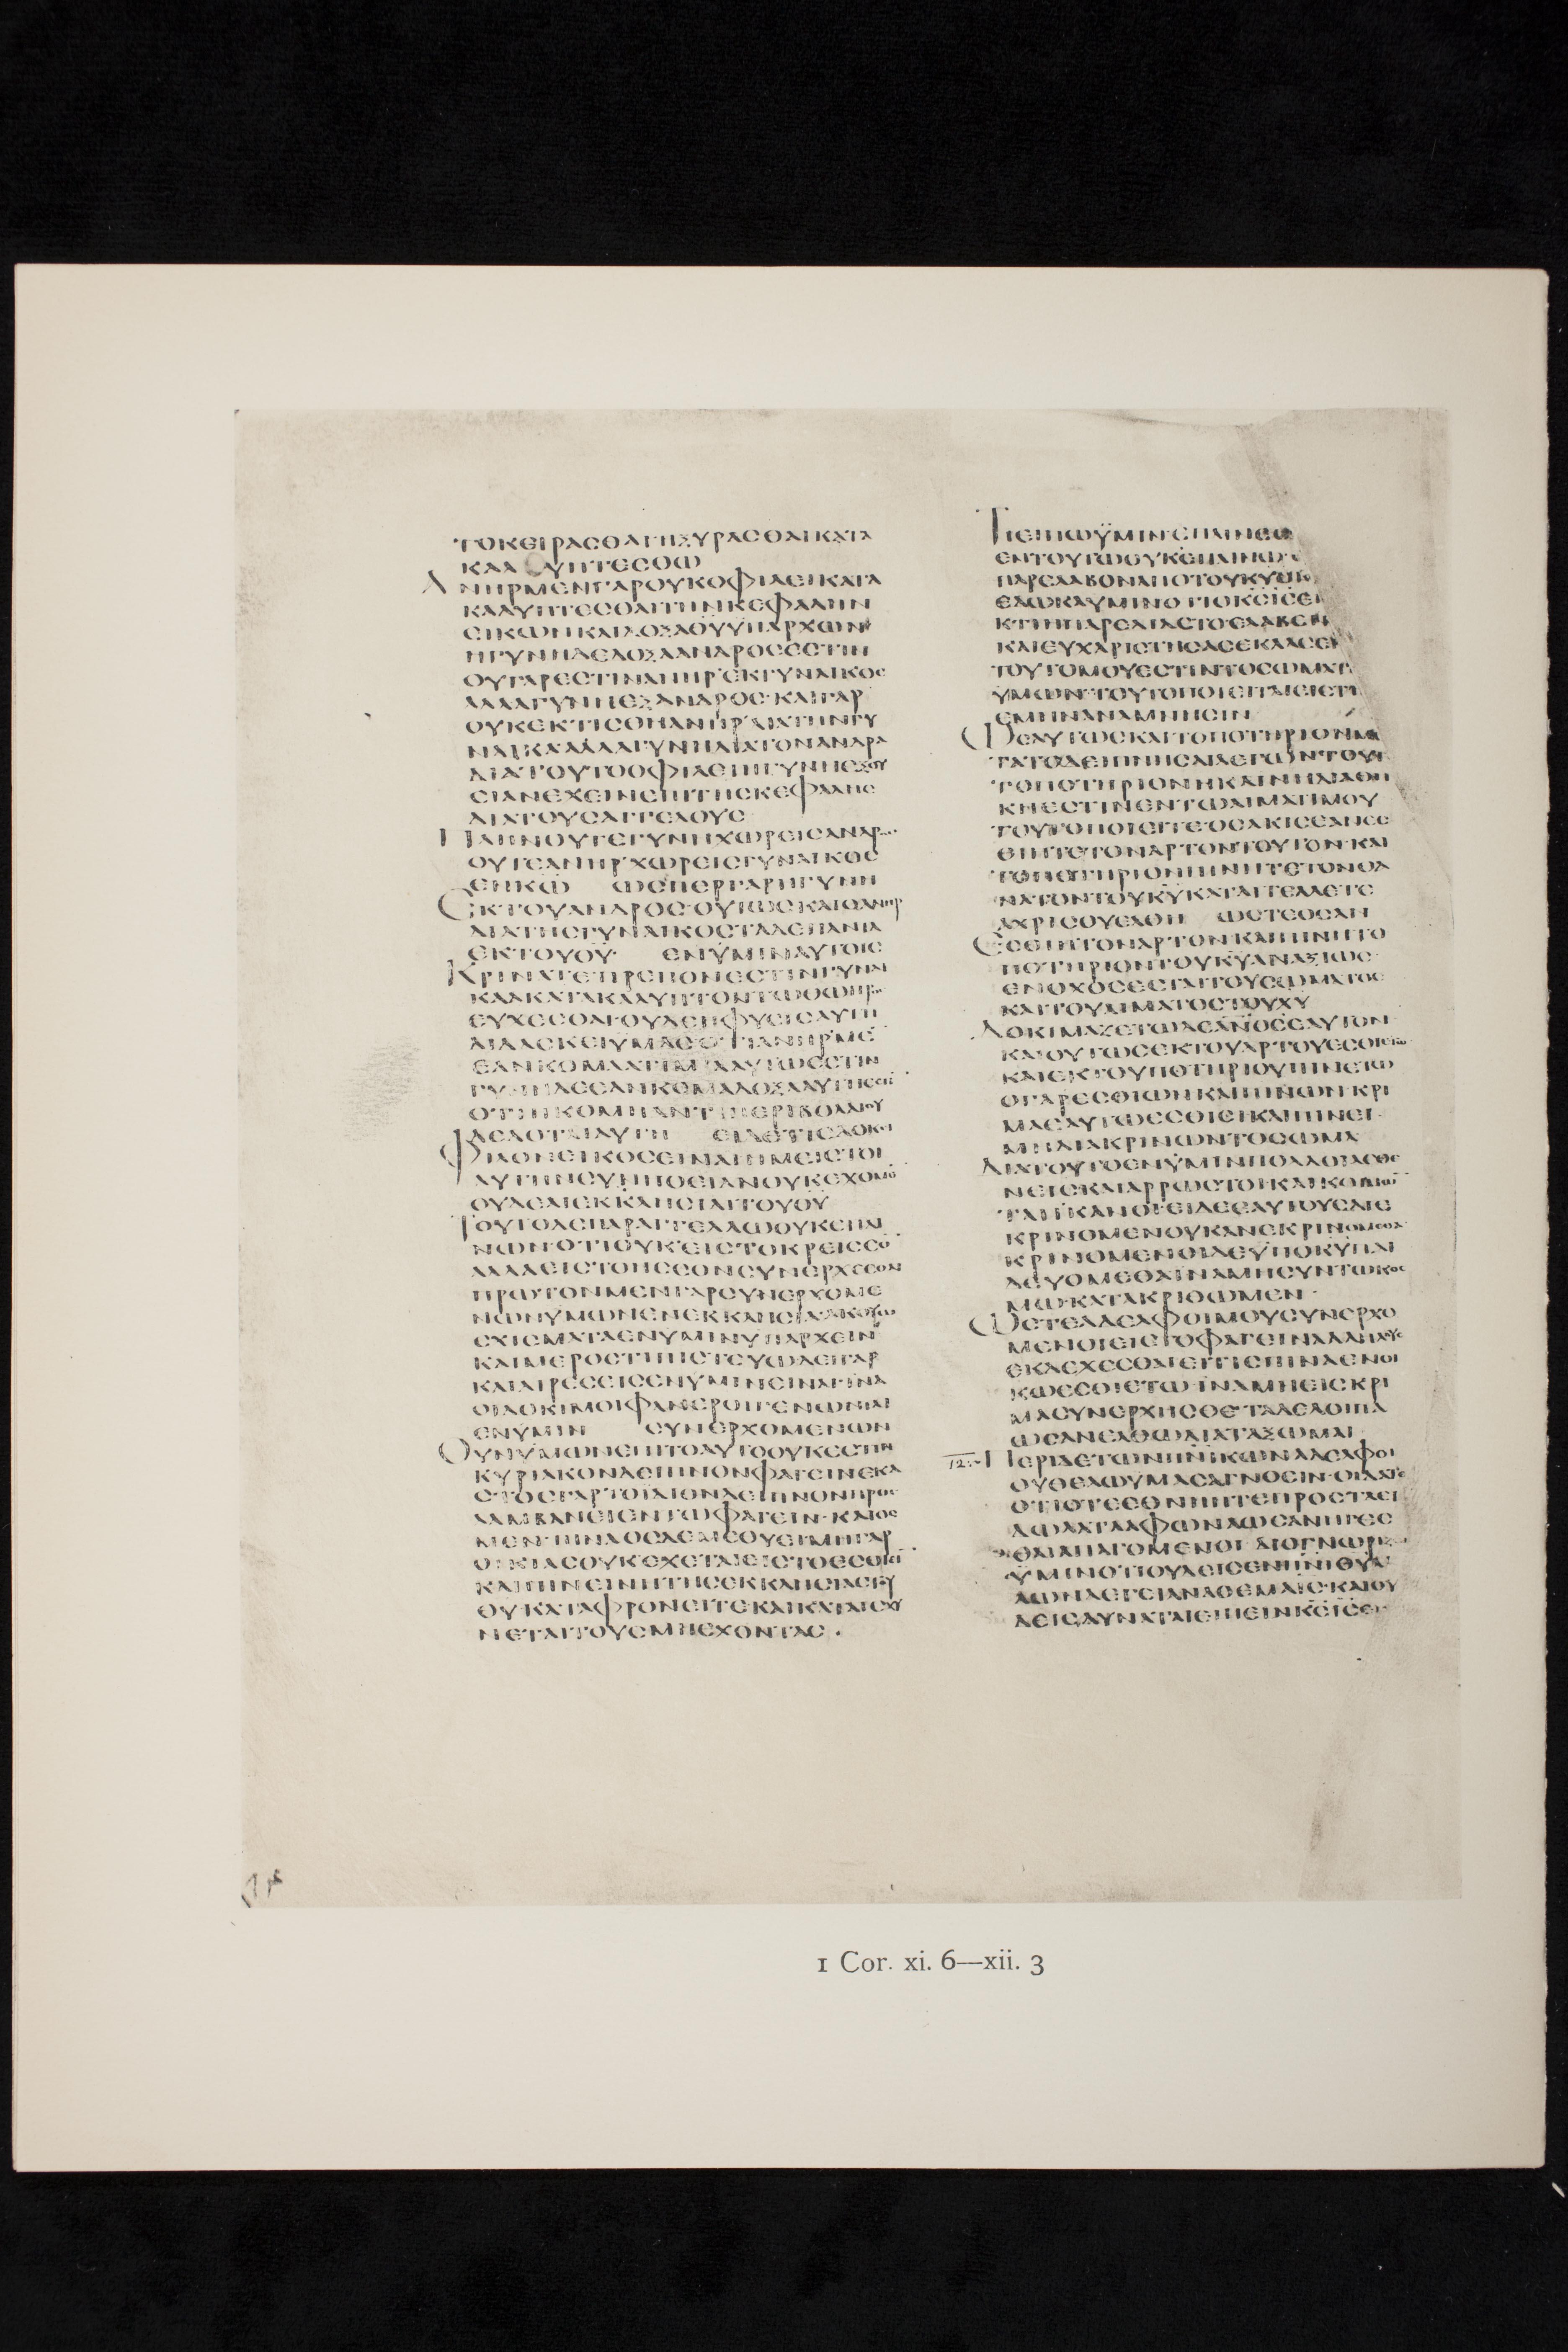 ΤΟΚΕΙΡΑΣΘΑΙΗΞΥΡΑΣΘΑΙΚΑΤΑ
ΚΑΛΥΠΤΕΣΘΩ
ΑΝΗΡΜΕΝΓΑΡΟΥΚΟΦΙΛΕΙΚΑΤΑ
ΚΑΛΥΠΤΕΣΘΑΙΤΗΝΚΕΦΑΛΗΝ
ΕΙΚΩΝΚΑΙΔΟΞΑΘΥΥΠΑΡΧΩΝ
ΗΓΥΝΗΔΕΔΟΞΑΑΝΔΡΟΣΕΣΤΙΝ
ΟΥΓΑΡΕΣΤΙΝΑΝΗΡΕΚΓΥΝΑΙΚΟΣ
ΑΛΛΑΓΥΝΗΕΞΑΝΔΡΟΣ·ΚΑΙΓΑΡ
ΟΥΚΕΚΤΙΣΘΗΑΝΗΡΔΙΑΤΗΝΓΥ
ΝΑΙΚΑ·ΑΛΛΑΓΥΝΗΔΙΑΤΟΝΑΝΔΡΑ
ΔΙΑΤΟΥΤΟΟΦΙΛΕΙΗΓΥΝΗΕΞΟΥ
ΣΙΑΝΕΧΕΙΝΕΠΙΤΗΣΚΕΦΑΛΗΣ
ΔΙΑΤΟΥΣΑΓΓΕΛΟΥΣ
ΠΛΗΝΟΥΤΕΓΥΝΗΧΩΡΕΙΣΑΝΔΡ
ΟΥΤΕΑΝΗΡΧΩΡΕΙΣΓΥΝΑΙΚΟΣ
ΕΝΚΩ ΩΣΠΕΡΓΑΡΗΓΥΝΗ
ΕΚΤΟΥΑΝΔΡΟΣ·ΟΥΤΩΣΚΑΙΟΑΝΗΡ
ΔΙΑΤΗΣΓΥΝΑΙΚΟΣΤΑΔΕΠΑΝΤΑ
ΕΚΤΟΥΘΥ· ΕΝΥΜΙΝΑΥΤΟΙΣ
ΚΡΙΝΑΤΕΠΡΕΠΟΝΕΣΤΙΝΓΥΝΑΙ
ΚΑΑΚΑΤΑΚΑΛΥΠΤΟΝΤΩΘΩΠΡ
ΕΥΧΕΣΘΑΙ·ΟΥΔΕΗΦΥΣΙΣΑΥΤΗ
ΔΙΔΑΣΚΕΙΥΜΑΣΟΤΙΑΝΗΡΜΕ
ΕΑΝΚΟΜΑΑΤΙΜΙΑΑΥΤΩΕΣΤΙΝ
ΓΥΝΗΔΕΕΑΝΚΟΜΑΔΟΞΑΑΥΤΗΕΣΤΙ
ΟΤΙΗΚΟΜΗΑΝΤΙΠΕΡΙΒΟΛΑΙΟΥ
ΔΕΔΟΤΑΙΑΥΤΗ ΕΙΔΕΤΙΣΔΟΚΕΙ
ΦΙΛΟΝΕΙΚΟΣΕΙΝΑΙΗΜΕΙΣΤΟΙ
ΑΥΤΗΝΣΥΝΗΘΕΙΑΝΟΥΚΕΧΟΜΕ
ΟΥΔΕΑΙΕΚΚΛΗΣΙΑΙΤΟΥΘΥ
ΤΟΥΤΟΔΕΠΑΡΑΓΓΕΛΛΩΟΥΚΕΠΑΙ
ΝΩΝ·ΟΤΙΟΥΚΕΙΣΤΟΚΡΕΙΣΣΟ
ΑΛΛΑΕΙΣΤΟΗΣΣΟΝΣΥΝΕΡΧΕΣΘΑΙ
ΠΡΩΤΟΝΜΕΝΓΑΡΣΥΝΕΡΧΟΜΕ
ΝΩΝΥΜΩΝΕΝΕΚΚΛΗΣΙΑΑΚΟΥΩ
ΣΧΙΣΜΑΤΑΕΝΥΜΙΝΥΠΑΡΧΕΙΝ
ΚΑΙΜΕΡΟΣΤΙΠΙΣΤΕΥΩΔΕΙΓΑΡ
ΚΑΙΑΙΡΕΣΕΙΣΕΝΥΜΙΝΕΙΝΑΙΙΝΑ
ΟΙΔΟΚΙΜΟΙΦΑΝΕΡΟΙΓΕΝΩΝΤΑΙ
ΕΝΥΜΙΝ ΣΥΝΕΡΧΟΜΕΝΩΝ
ΟΥΝΥΜΩΝΕΠΙΤΟΑΥΤΟΟΥΚΕΣΤΙΝ
ΚΥΡΙΑΚΟΝΔΕΙΠΝΟΝΦΑΓΕΙΝΕΚΑ
ΣΤΟΣΓΑΡΤΟΙΔΙΟΝΔΕΙΠΝΟΝΠΡΟΣ
ΛΑΜΒΑΝΕΙΕΝΤΩΦΑΓΕΙΝ·ΚΑΙΟΣ
ΜΕΝΠΙΝΑΟΣΔΕΜΕΘΥΕΙΜΗΓΑΡ
ΟΙΚΙΑΣΟΥΚΕΧΕΤΑΙΕΙΣΤΟΕΣΘΙΕΙ
ΚΑΙΠΙΝΕΙΝΗΤΗΣΕΚΚΛΗΣΙΑΣΤΟΥ
ΘΥΚΑΤΑΦΡΟΝΕΙΤΕΚΑΙΚΑΤΑΙΣΧΥ
ΝΕΤΑΙΤΟΥΣΜΗΕΧΟΝΤΑΣ·
ΤΙΕΙΠΩΥΜΙΝΕΠΑΙΝΕΣΩ
ΕΝΤΟΥΤΩΟΥΚΕΠΑΙΝΩ
ΠΑΡΕΛΑΒΟΝΑΠΟΤΟΥΚΥ
ΕΔΩΚΑΥΜΙΝΟΤΙΟΚΣΙΣΕ
ΚΤΗΠΑΡΕΔΙΔΕΤΟΕΛΑΒΕΝ
ΚΑΙΕΥΧΑΡΙΣΤΗΣΑΣΕΚΛΑΣΕ
ΤΟΥΤΟΜΟΥΕΣΤΙΝΤΟΣΩΜΑΤ
ΥΜΩΝ·ΤΟΥΤΟΠΟΙΕΙΤΑΙΕΙΣΤΗ
ΕΜΗΝΑΝΑΜΝΗΣΙΝ
ΩΣΑΥΤΩΣΚΑΙΤΟΠΟΤΗΡΙΟΝΜΕ
ΤΑΤΟΔΕΙΠΝΗΣΑΙΛΕΓΩΝΤΟΥΤ
ΤΟΠΟΤΗΡΙΟΝΗΚΑΙΝΗΔΙΑΘΗ
ΚΗΕΣΤΙΝΕΝΤΩΑΙΜΑΤΙΜΟΥ
ΤΟΥΤΟΠΟΙΕΙΤΕΟΣΑΚΙΣΕΑΝΕΣ
ΘΙΗΤΕΤΟΝΑΡΤΟΝΤΟΥΤΟΝ·ΚΑΙ
ΤΟΠΟΤΗΡΙΟΝΠΙΝΗΤΕΤΟΝΘΑ
ΝΑΤΟΝΤΟΥΚΥΚΑΤΑΓΓΕΛΛΕΤΕ
ΑΧΡΙΣΟΥΕΛΘΗ ΩΣΤΕΟΣΑΝ
ΕΣΘΙΗΤΟΝΑΡΤΟΝΚΑΙΠΙΝΗΤΟ
ΠΟΤΗΡΙΟΝΤΟΥΚΥΑΝΑΞΙΩΣ·
ΕΝΟΧΟΣΕΣΤΑΙΤΟΥΣΩΜΑΤΟΣ
ΚΑΙΤΟΥΑΙΜΑΤΟΣΤΟΥΧΥ
ΔΟΚΙΜΑΖΕΤΩΔΕΑΝΟΣΕΑΥΤΟΝ
ΚΑΙΟΥΤΩΣΕΚΤΟΥΑΡΤΟΥΕΣΘΙΕΤΩ
ΚΑΙΕΚΤΟΥΠΟΤΗΡΙΟΥΠΙΝΕΤΩ
ΟΓΑΡΕΣΘΙΩΝΚΑΙΠΙΝΩΝ·ΚΡΙ
ΜΑΕΑΥΤΩΕΣΘΙΕΙΚΑΙΠΙΝΕΙ·
ΜΗΔΙΑΚΡΙΝΩΝΤΟΣΩΜΑ
ΔΙΑΤΟΥΤΟΕΝΥΜΙΝΠΟΛΛΟΙΑΣΘΕ
ΝΕΙΣΚΑΙΑΡΡΩΣΤΟΙ·ΚΑΙΚΟΙΜΩ
ΤΑΙΙΚΑΝΟΙΕΙΔΕΕΑΥΤΟΥΣΔΙΕ
ΚΡΙΝΟΜΕΝΟΥΚΑΝΕΚΡΙΝΟΜΕΘΑ
ΚΡΙΝΟΜΕΝΟΙΔΕΥΠΟΚΥΠΑΙ
ΔΕΥΟΜΕΘΑΙΝΑΜΗΣΥΝΤΩΚΟΣ
ΜΩ·ΚΑΤΑΚΡΙΘΩΜΕΝ
ΩΣΤΕΑΔΕΛΦΟΙΜΟΥΣΥΝΕΡΧΟ
ΜΕΝΟΙΕΙΣΤΟΦΑΓΕΙΝΑΛΛΗΛΟΥΣ
ΕΚΔΕΧΕΣΘΑΙΕΙΤΙΣΠΙΝΑΕΝΟΙ
ΚΩΕΣΘΙΕΤΩ·ΙΝΑΜΗΕΙΣΚΡΙ
ΜΑΣΥΝΕΡΧΗΣΘΕ·ΤΑΔΕΛΟΙΠΑ
ΩΣΑΝΕΛΘΩΔΙΑΤΑΞΩΜΑΙ
12 ΠΕΡΙΔΕΤΩΝΠΝΙΚΩΝΑΔΕΛΦΟΙ
ΟΥΘΕΛΩΥΜΑΣΑΓΝΟΕΙΝ·ΟΙΔΑΤΕ
ΟΤΙΟΤΕΕΘΝΗΗΤΕΠΡΟΣΤΑΕΙ
ΔΩΛΑΤΑΑΦΩΝΑΩΣΑΝΗΓΕΣ
ΘΑΙΑΠΑΓΟΜΕΝΟΙ·ΔΙΟΓΝΩΡΙΖ
ΥΜΙΝΟΤΙΟΥΔΕΙΣΕΝΠΝΙΘΥΛΑ
ΛΩΝΛΕΓΕΙΑΝΑΘΕΜΑΙΣ·ΚΑΙΟΥ
ΔΕΙΣΔΥΝΑΤΑΙΕΙΠΕΙΝΚΣΙΣΕΙ
1 Cor. xi. 6—xii. 3